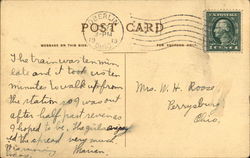 OBERLIN
POST CARD
MESSAGE ON THIS SIDE.
FOR ADDRESS ONLY.
The train was ten min
late and it took us ten
minutes to walk up from
the station so I was out
after half past seven as
I hoped to be. The girls enjoy
ed the spread very much
Marian.
Mrs. W. H. Roose
Perrysburg
Ohio.